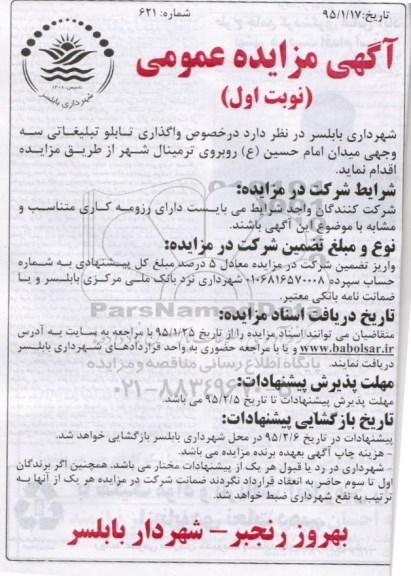 تاریخ: ۹۵/۱/۱۷
شماره: ۶۲۱
تاسیس ۱۳۰۸
شهرداری بابلسر
آگهی مزایده عمومی
(نوبت اول)
شهرداری بابلسر در نظر دارد درخصوص واگذاری تابلو تبلیغاتی سه
وجهی میدان امام حسین (ع) روبروی ترمینال شهر از طریق مزایده
اقدام نماید.
شرایط شرکت در مزایده:
شرکت کنندگان واجد شرایط می بایست دارای رزومه کاری متناسب و
مشابه با موضوع این آگهی باشند.
نوع و مبلغ تضمین شرکت در مزایده:
واریز تضمین شرکت در مزایده معادل ۵ درصد مبلغ کل پیشنهادی به شماره
حساب سپرده ۰۱۰۶۸۱۶۵۷۰۰۰۸ شهرداری نزد بانک ملی مرکزی بابلسر و یا
ضمانت نامه بانکی معتبر.
تاریخ دریافت اسناد مزایده:
متقاضیان می توانند اسناد مزایده را از تاریخ ۹۵/۱/۲۵ با مراجعه به سایت به آدرس
www.babolsar.ir و یا با مراجعه حضوری به واحد قراردادهای شهرداری بابلسر
دریافت نمایند.
مهلت پذیرش پیشنهادات:
مهلت پذیرش پیشنهادات تا تاریخ ۹۵/۲/۵ می باشد.
تاریخ بازگشایی پیشنهادات:
پیشنهادات در تاریخ ۹۵/۲/۶ در محل شهرداری بابلسر بازگشایی خواهد شد.
- هزینه چاپ آگهی بعهده برنده مزایده می باشد.
- شهرداری در رد یا قبول هر یک از پیشنهادات مختار می باشد. همچنین اگر برندگان
اول تا سوم حاضر به انعقاد قرارداد نگردند ضمانت شرکت در مزایده هر یک از آنها به
ترتیب به نفع شهرداری ضبط خواهد شد.
بهروز رنجبر - شهردار بابلسر